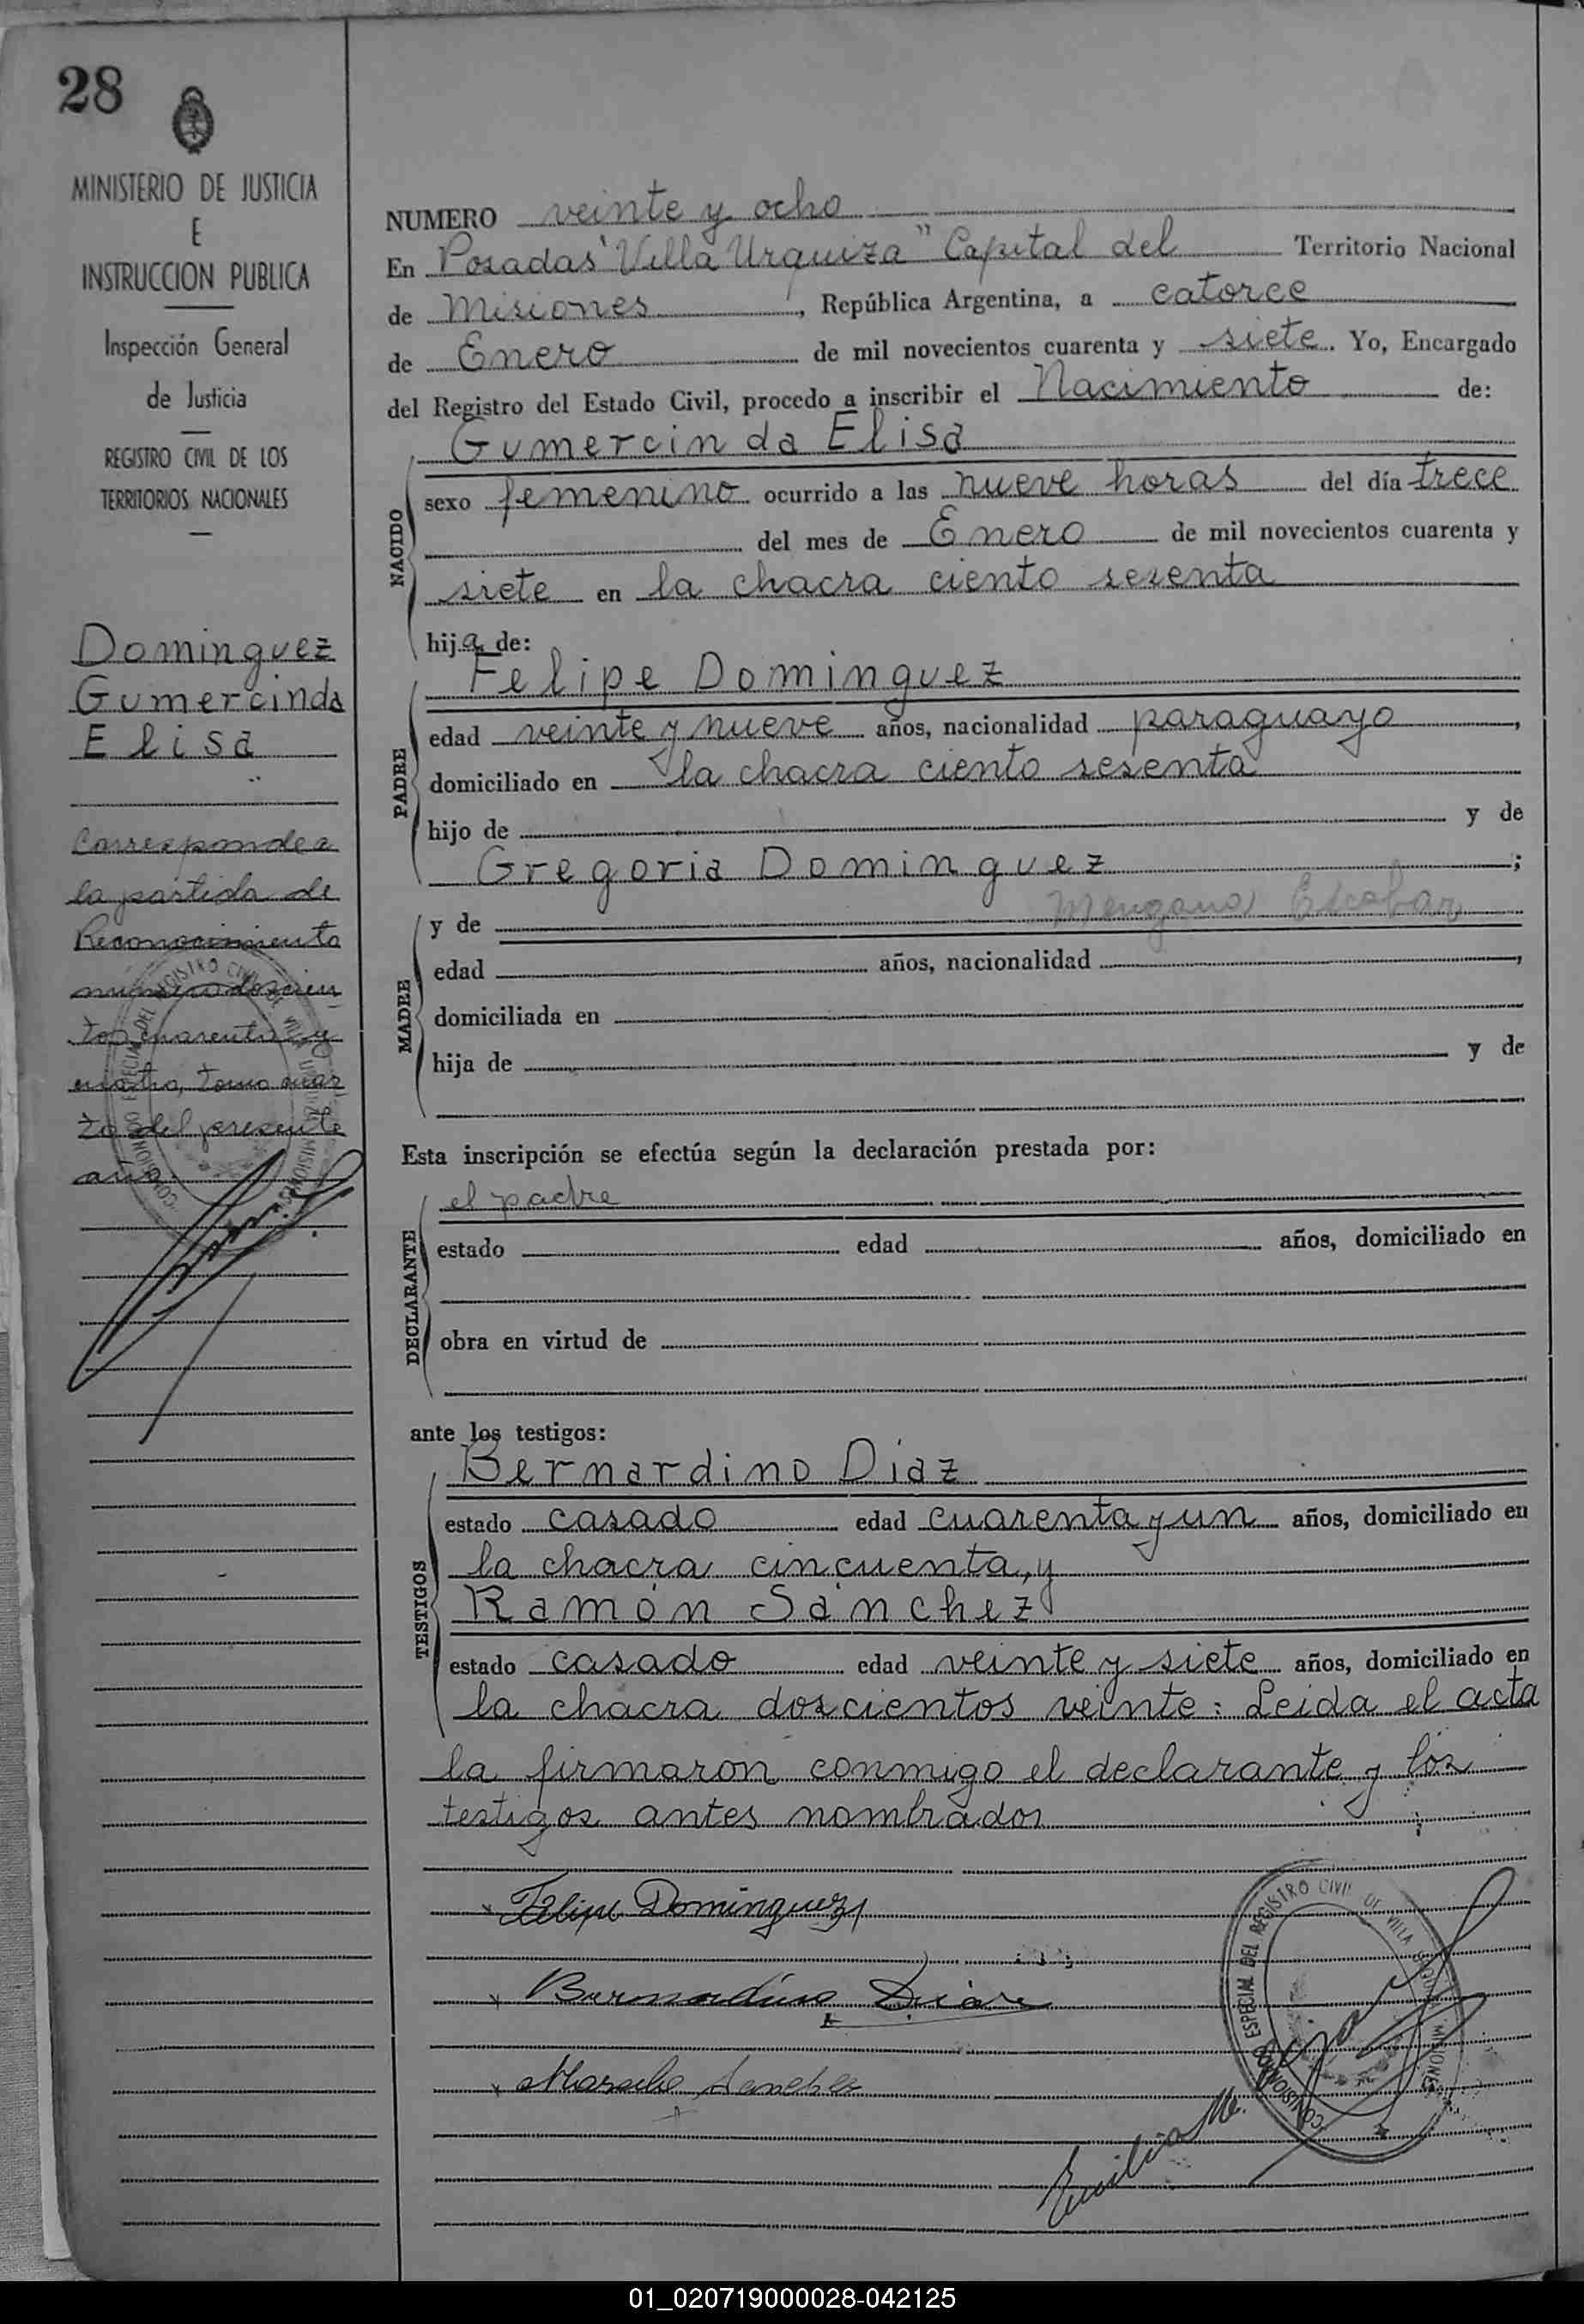 28
MINISTERIO DE JUSTICIA
E
INSTRUCCION PUBLICA
Inspección General
de Justicia
REGISTRO CIVIL DE LOS
TERRITORIOS NACIONALES
Dominguez
Gumercinda
Elisa
Corresponde a
la partida de
Reconocimiento
número doscien
tos cuarenta y
cuatro, tomo cuar
to del presente
año
NUMERO veinte y ocho
En Posadas "Villa Urquiza" Capital del Territorio Nacional
de Misiones, República Argentina, a catorce
de Enero de mil novecientos cuarenta y siete. Yo, Encargado
del Registro del Estado Civil, procedo a inscribir el Nacimiento de:
Gumercinda Elisa
NACIDO
sexo femenino ocurrido a las nueve horas del día trece
del mes de Enero de mil novecientos cuarenta y
siete en la chacra ciento sesenta
hija de:
Felipe Dominguez
PADRE
edad veinte y nueve años, nacionalidad paraguayo,
domiciliado en la chacra ciento sesenta
hijo de y de
Gregoria Dominguez;
y de Escobar
MADRE
edad años, nacionalidad,
domiciliada en
hija de y de
Esta inscripción se efectúa según la declaración prestada por:
el padre
DECLARANTE
estado edad años, domiciliado en
obra en virtud de
ante los testigos:
Bernardino Diaz
TESTIGOS
estado casado edad cuarenta y un años, domiciliado en
la chacra cincuenta, y
Ramón Sánchez
estado casado edad veinte y siete años, domiciliado en
la chacra doscientos veinte: Leida el acta
la firmaron conmigo el declarante y los
testigos antes nombrados
Felipe Dominguez
Bernardino Diaz
Sanchez
Emilio M.
COMISIONADO ESPECIAL DEL REGISTRO CIVIL DE VILLA URQUIZA MISIONES
01_020719000028-042125